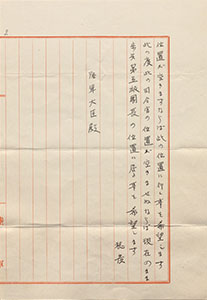 位置が空きますならば此の位置に行く事を希望します
此の度此の司令官の位置が空きませぬならば現在のまま
歩兵第五旅団長の位置に居る事を希望します
陸軍大臣殿